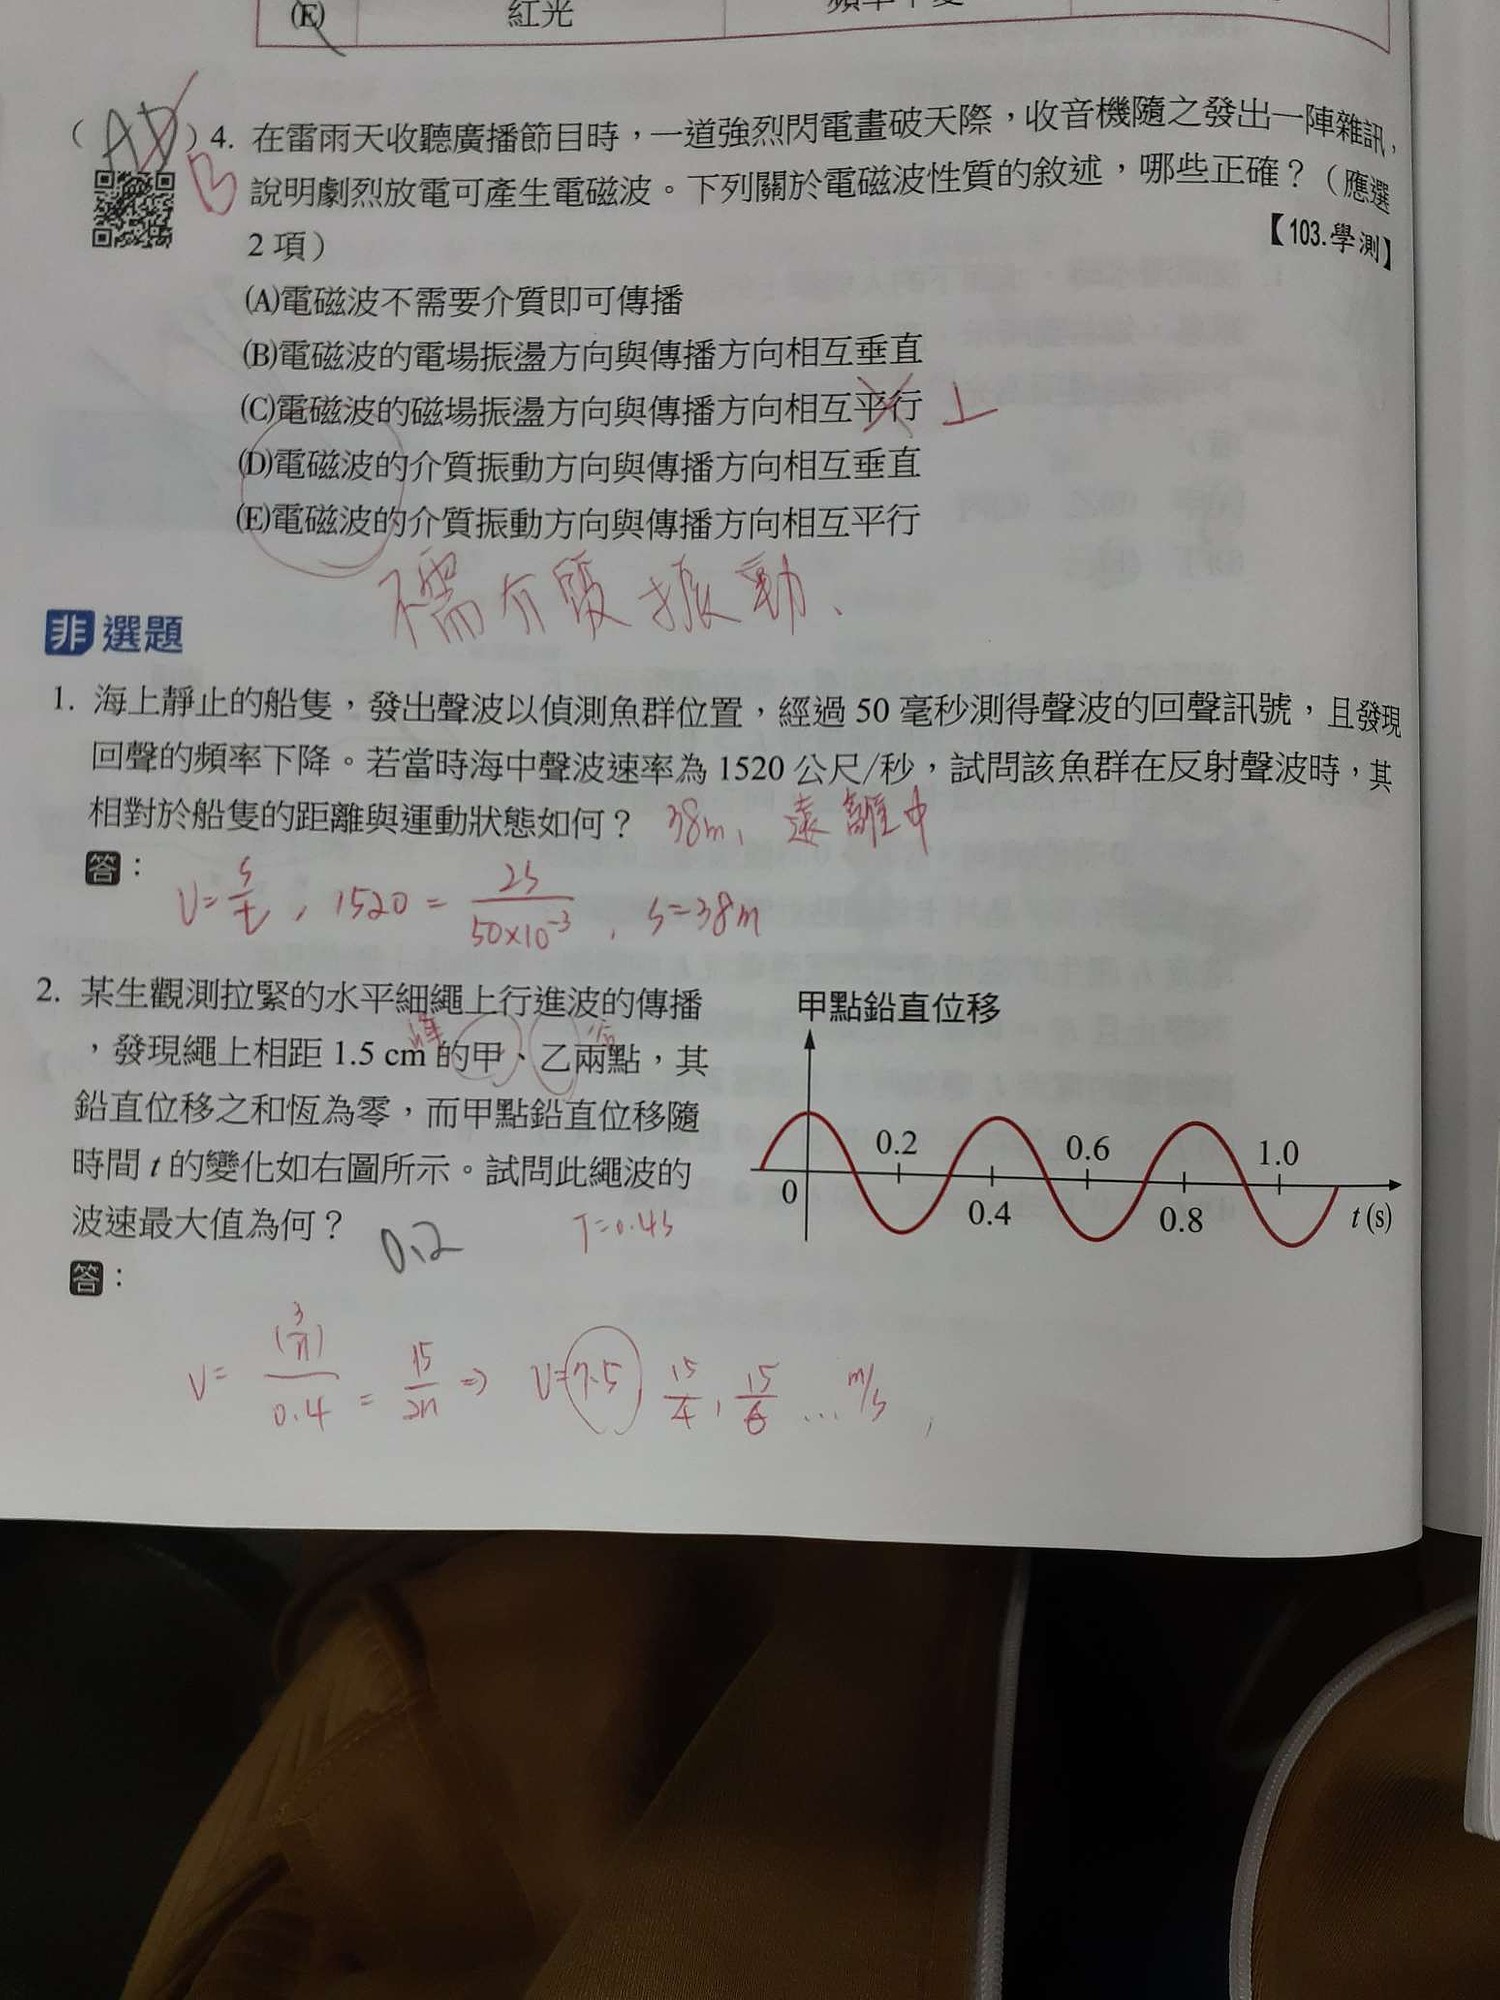 (E) 紅光 頻率不變
( AD ) 4. 在雷雨天收聽廣播節目時，一道強烈閃電畫破天際，收音機隨之發出一陣雜訊，
B 說明劇烈放電可產生電磁波。下列關於電磁波性質的敘述，哪些正確？（應選
2 項） 【103.學測】
(A)電磁波不需要介質即可傳播
(B)電磁波的電場振盪方向與傳播方向相互垂直
(C)電磁波的磁場振盪方向與傳播方向相互平行 ⊥
(D)電磁波的介質振動方向與傳播方向相互垂直
(E)電磁波的介質振動方向與傳播方向相互平行
不需介質振動、
非選題
1. 海上靜止的船隻，發出聲波以偵測魚群位置，經過 50 毫秒測得聲波的回聲訊號，且發現
回聲的頻率下降。若當時海中聲波速率為 1520 公尺/秒，試問該魚群在反射聲波時，其
相對於船隻的距離與運動狀態如何？ 38m、遠離中
答：
V=S/t , 1520 = 2S/50×10⁻³ , S=38m
2. 某生觀測拉緊的水平細繩上行進波的傳播
，發現繩上相距 1.5 cm 的甲、乙兩點，其
鉛直位移之和恆為零，而甲點鉛直位移隨
時間 t 的變化如右圖所示。試問此繩波的
波速最大值為何？ 0.2 T=0.4s
答：
甲點鉛直位移
0.2 0.6 1.0
0 0.4 0.8 t (s)
V= (3/n)/0.4 = 15/2n ⇒ V=7.5, 15/4, 15/6 ... m/s